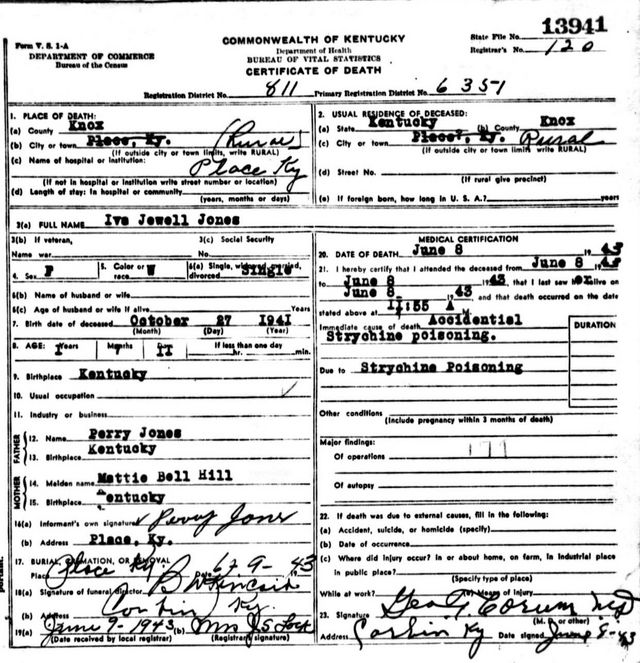 13941
Form V. S. 1-A
COMMONWEALTH OF KENTUCKY
State File No.
DEPARTMENT OF COMMERCE
Bureau of the Census
Department of Health
BUREAU OF VITAL STATISTICS
CERTIFICATE OF DEATH
Registrar's No. 120
Registration District No. 811 Primary Registration District No. 6351
1. PLACE OF DEATH:
(a) County Knox
(b) City or town Place, Ky. (Rural)
(If outside city or town limits, write RURAL)
(c) Name of hospital or institution: Place Ky
(If not in hospital or institution write street number or location)
(d) Length of stay: In hospital or community
(years, months or days)
2. USUAL RESIDENCE OF DECEASED:
(a) State Kentucky (b) County Knox
(c) City or town Place, Ky. Rural
(If outside city or town limits, write RURAL)
(d) Street No.
(If rural give precinct)
(e) If foreign born, how long in U. S. A.? years
3(a) FULL NAME Iva Jewell Jones
3(b) If veteran,
Name war
3(c) Social Security
No.
4. Sex F
5. Color or race W
6(a) Single, widowed, married, divorced Single
6(b) Name of husband or wife
6(c) Age of husband or wife if alive Years
7. Birth date of deceased October 27 1941
(Month) (Day) (Year)
8. AGE: Years 1 Months 7 Days 11 If less than one day
hr. min.
9. Birthplace Kentucky
10. Usual occupation
11. Industry or business
FATHER
12. Name Perry Jones
13. Birthplace Kentucky
MOTHER
14. Maiden name Mattie Bell Hill
15. Birthplace Kentucky
16(a) Informant's own signature Perry Jones
(b) Address Place, Ky.
17. BURIAL, CREMATION, OR REMOVAL
Place Place Ky Date 6-9-43
18(a) Signature of funeral director
(b) Address Corbin Ky.
19(a) June 9-1943 (b) Mrs J.S. Lock
(Date received by local registrar) (Registrar signature)
MEDICAL CERTIFICATION
20. DATE OF DEATH June 8 1943
21. I hereby certify that I attended the deceased from June 8 1943
to June 8 1943, that I last saw her alive on
June 8 1943 and that death occurred on the date
stated above at 11:55 A M.
Immediate cause of death Accidential
Strychine poisoning.
DURATION
Due to Strychine Poisoning
Other conditions
(Include pregnancy within 3 months of death)
Major findings:
Of operations
Of autopsy
22. If death was due to external causes, fill in the following:
(a) Accident, suicide, or homicide (specify)
(b) Date of occurrence
(c) Where did injury occur? In or about home, on farm, in industrial place
in public place?
(Specify type of place)
While at work? (e) Means of injury
23. Signature Geo G Corum MD
(M. D. or other)
Address Corbin Ky Date signed June 8-43